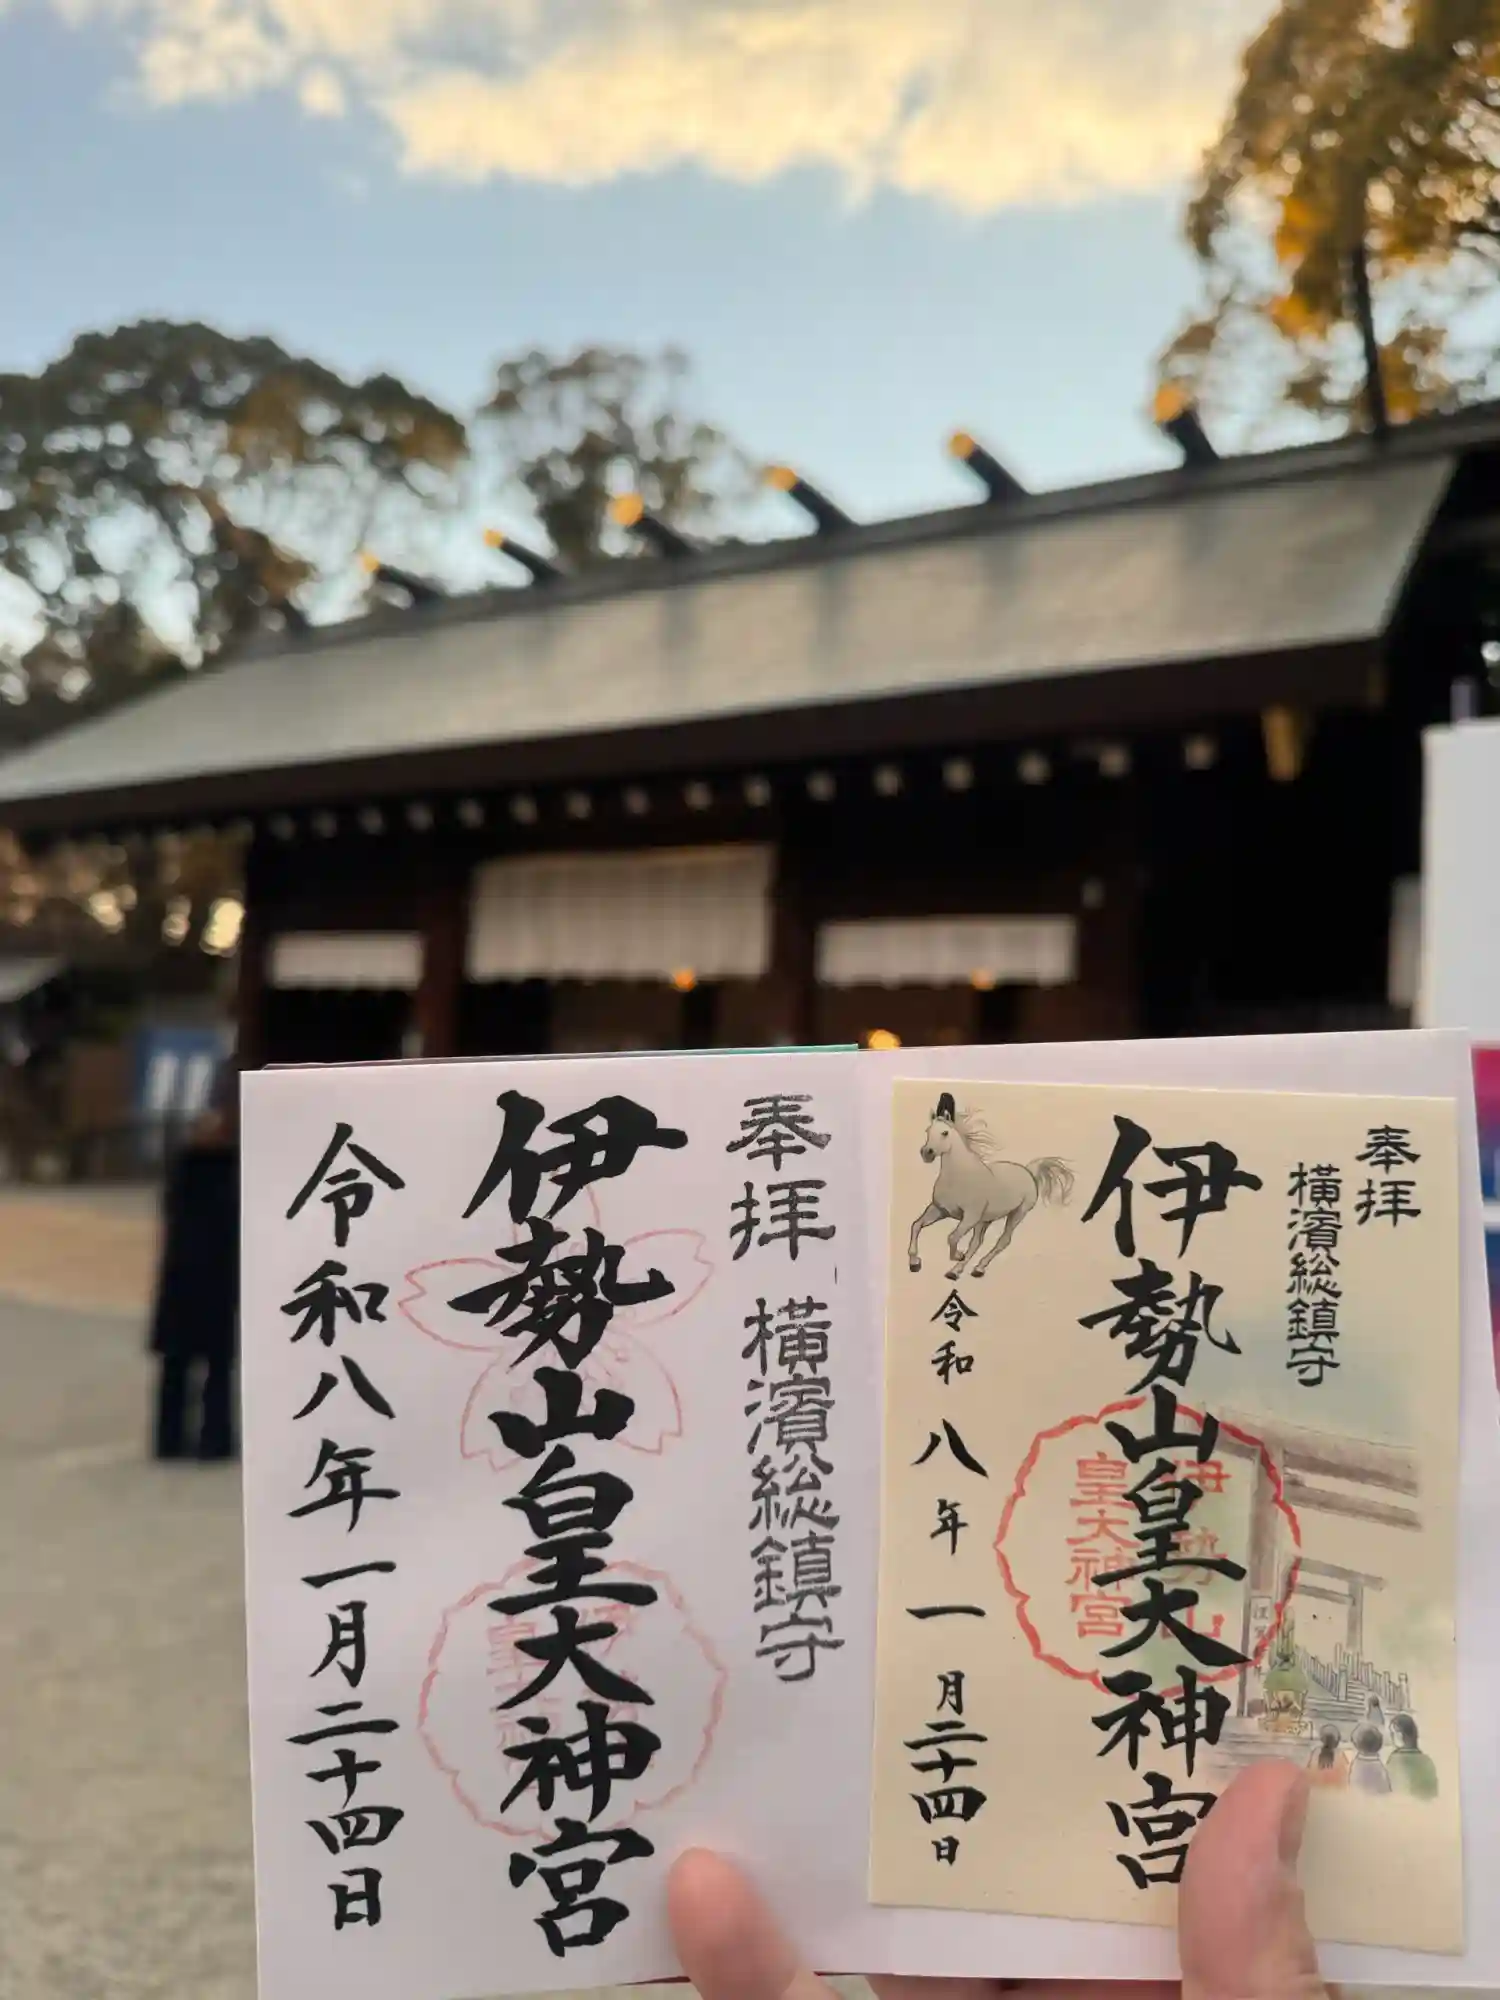 奉拝
横濱総鎮守
伊勢山皇大神宮
令和八年一月二十四日
奉拝
横濱総鎮守
伊勢山皇大神宮
令和八年一月二十四日
伊勢山
皇大神宮